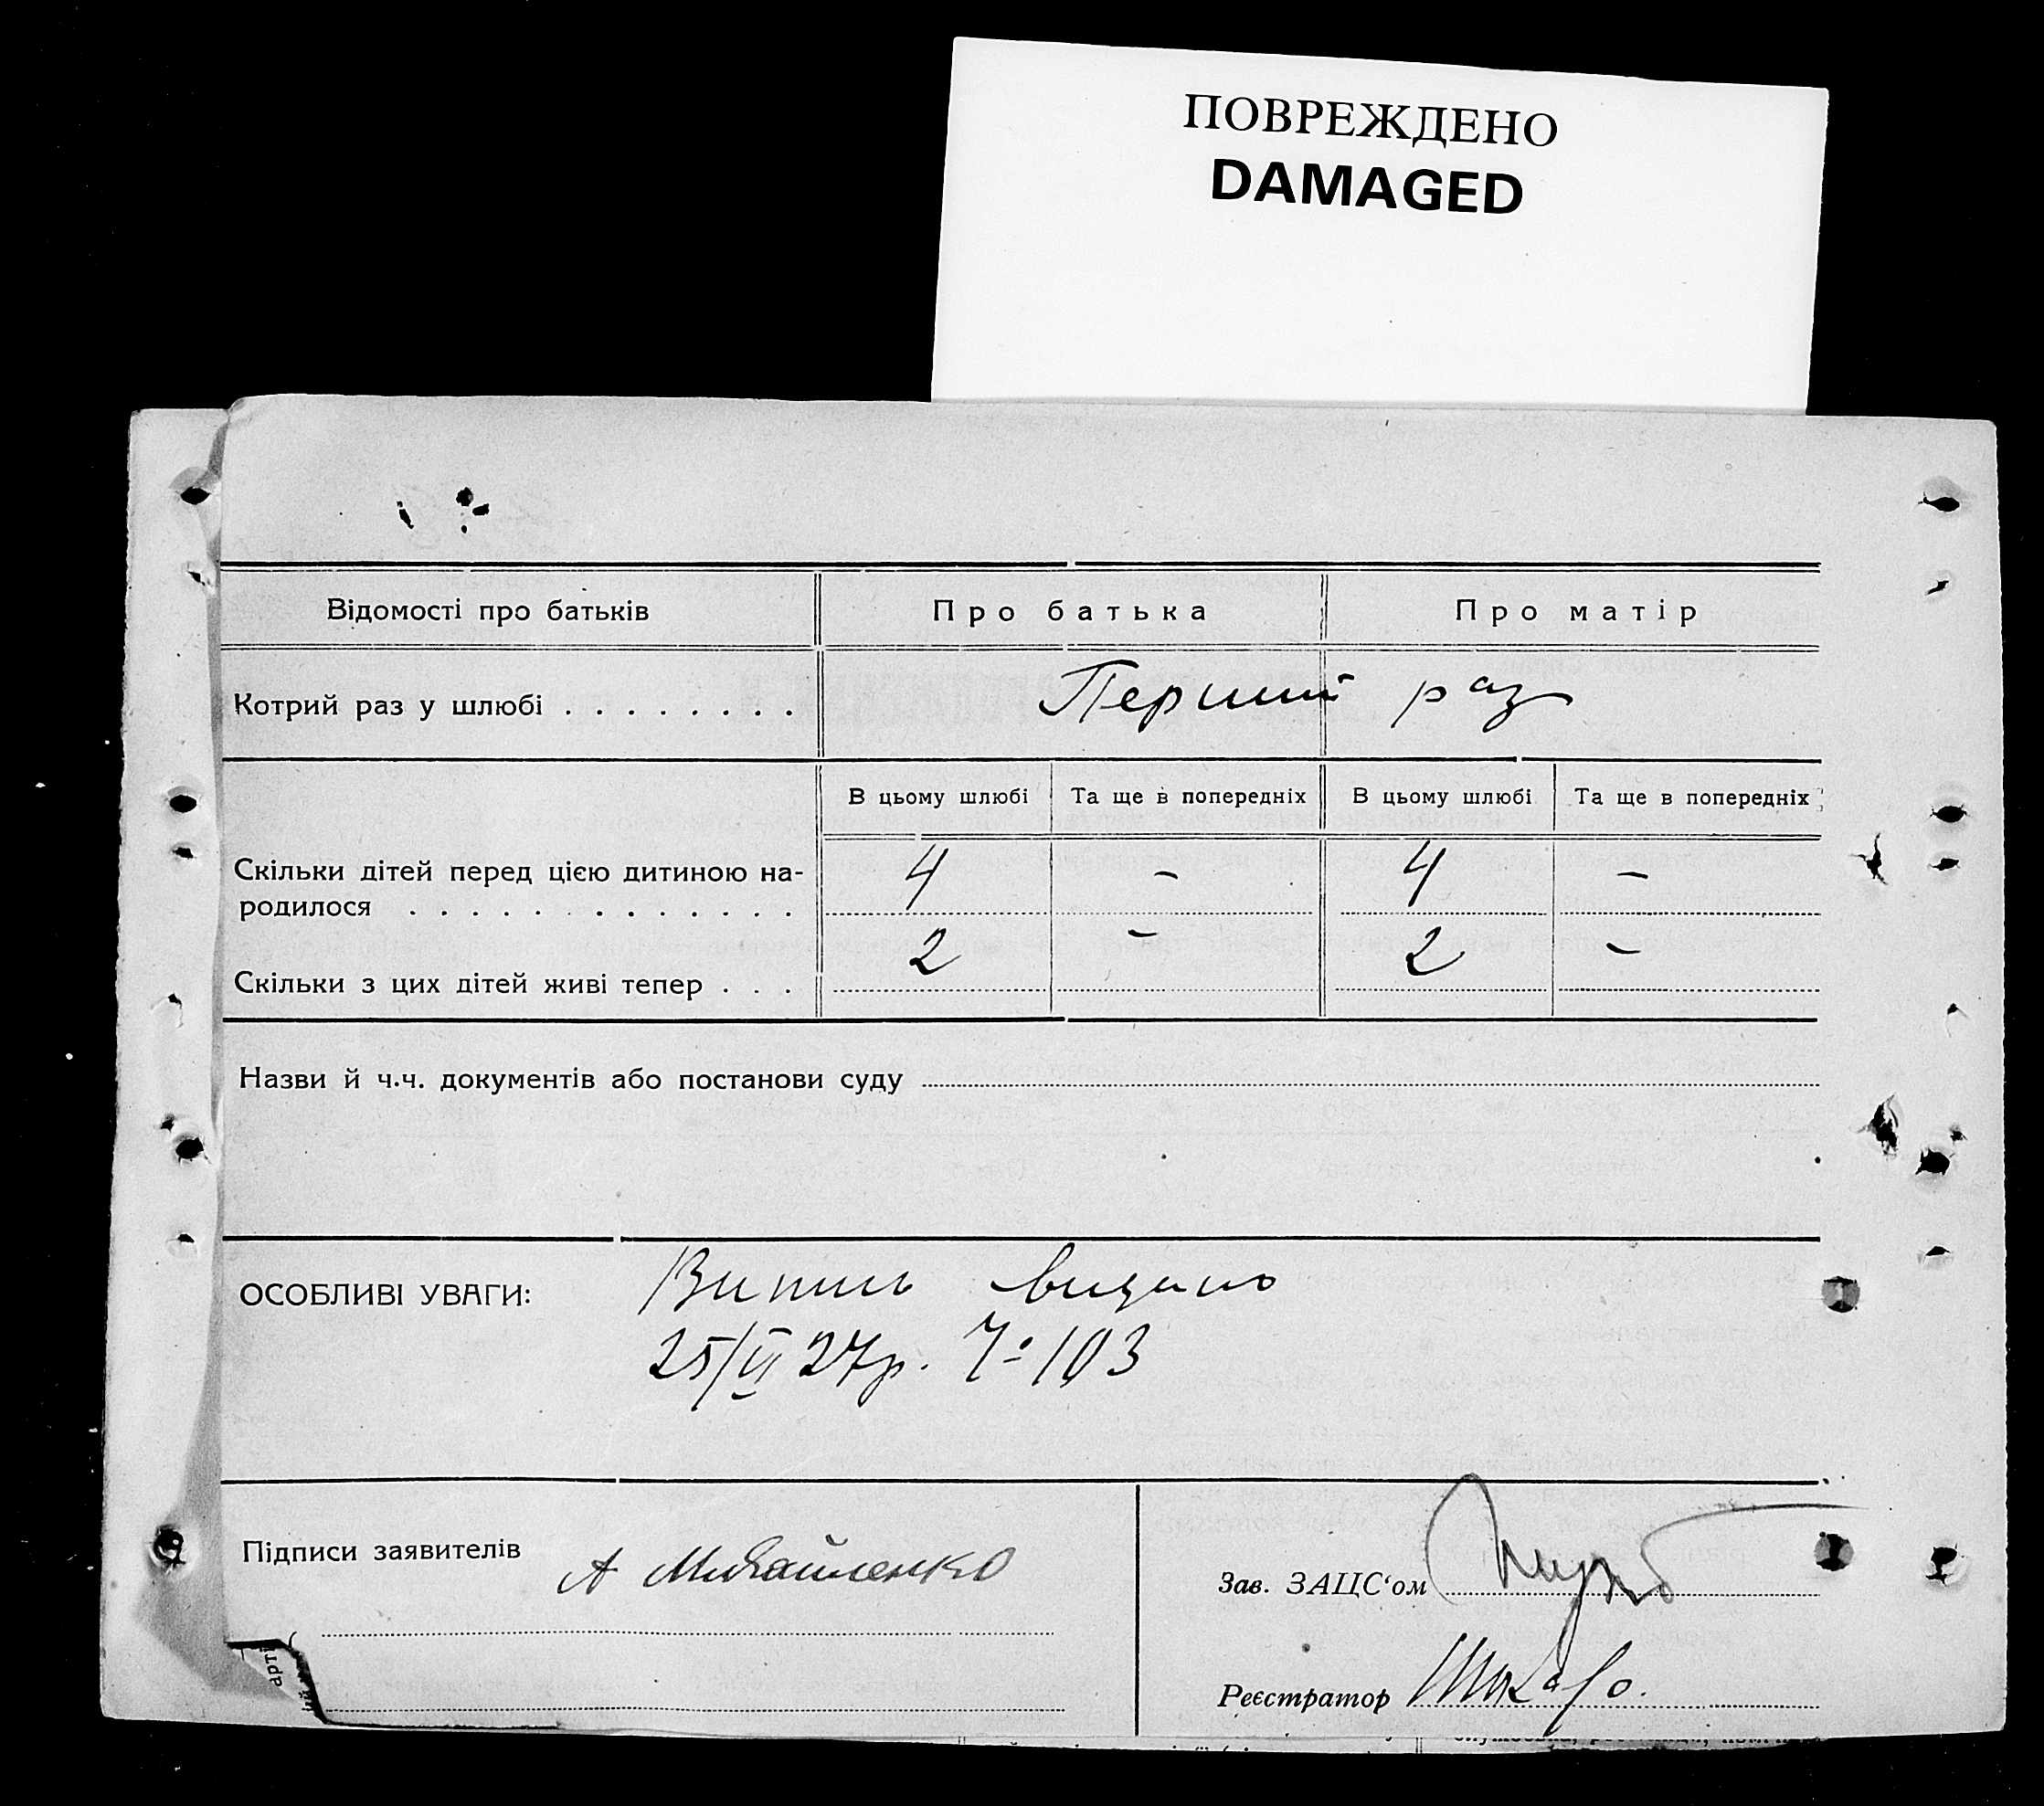 ПОВРЕЖДЕНО
DAMAGED
Відомості про батьків Про батька Про матір
Котрий раз у шлюбі . . . . . . . . Перший раз
В цьому шлюбі Та ще в попередніх В цьому шлюбі Та ще в попередніх
Скільки дітей перед цією дитиною на-
родилося . . . . . . . . . . . . . 4 – 4 –
Скільки з цих дітей живі тепер . . . 2 – 2 –
Назви й ч.ч. документів або постанови суду
ОСОБЛИВІ УВАГИ: Витяг видано
25/VI 27р. № 103
Підписи заявителів А Михайленко
Зав. ЗАЦС‘ом
Реєстратор
арті